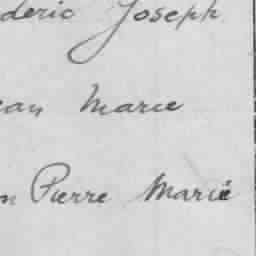 deric Joseph
ean Marie
n Pierre Marie